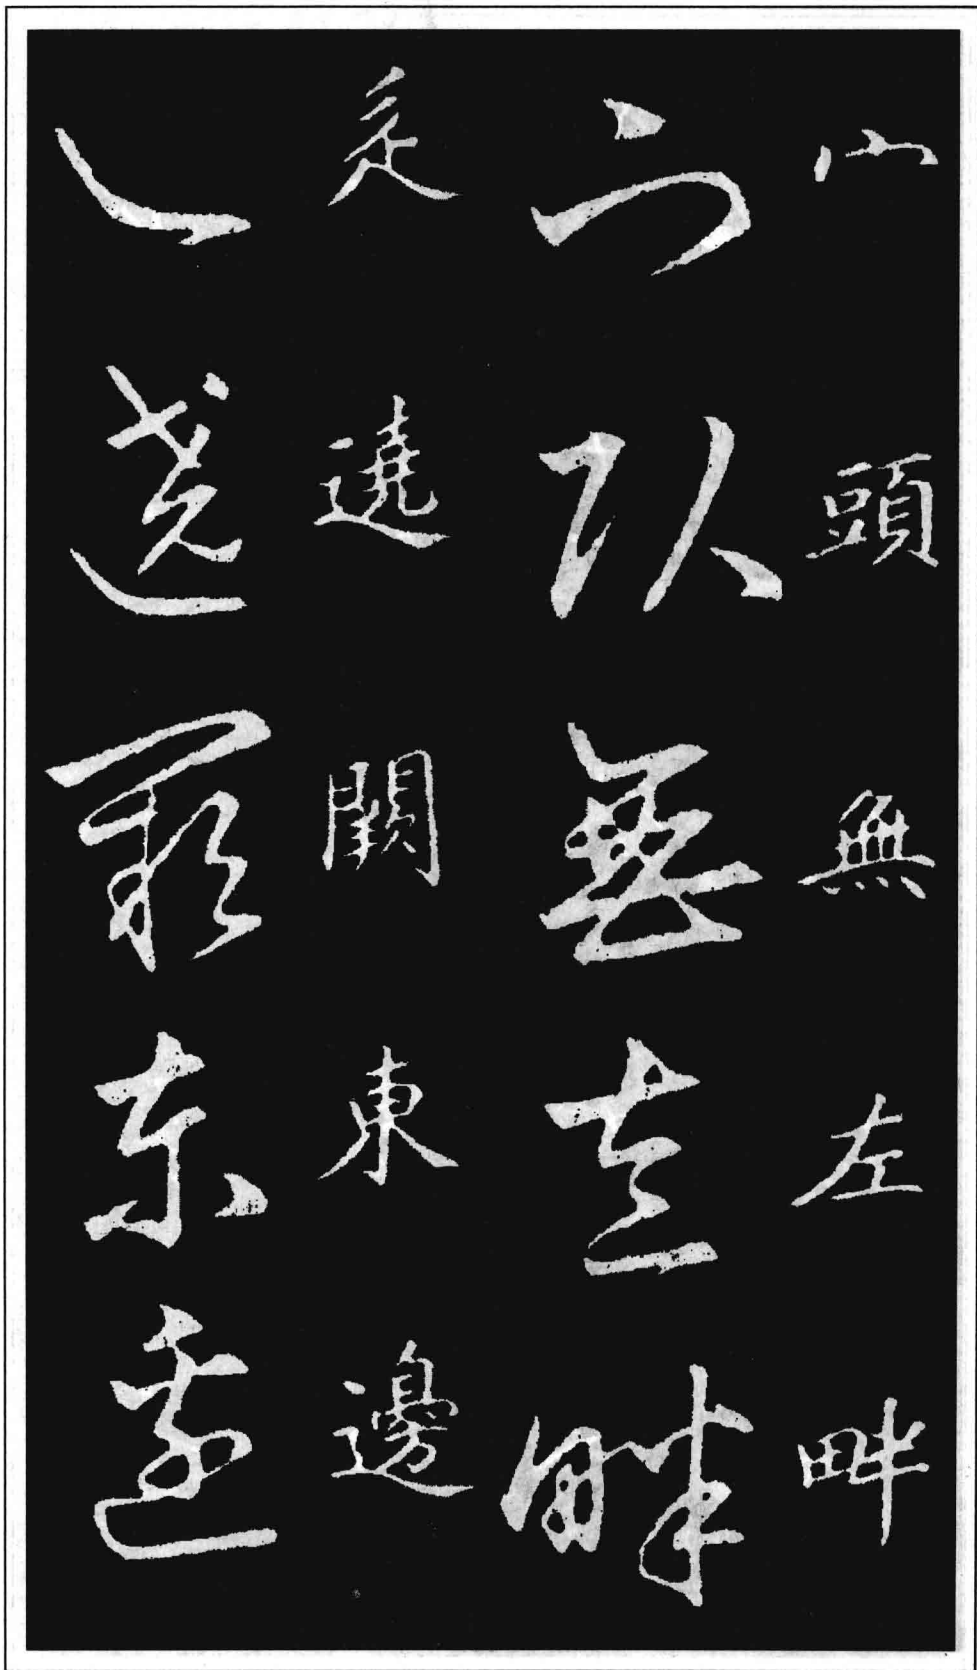 宀頭無左畔
宀頭無左畔
辵遶闕東邊
辵遶闕東邊